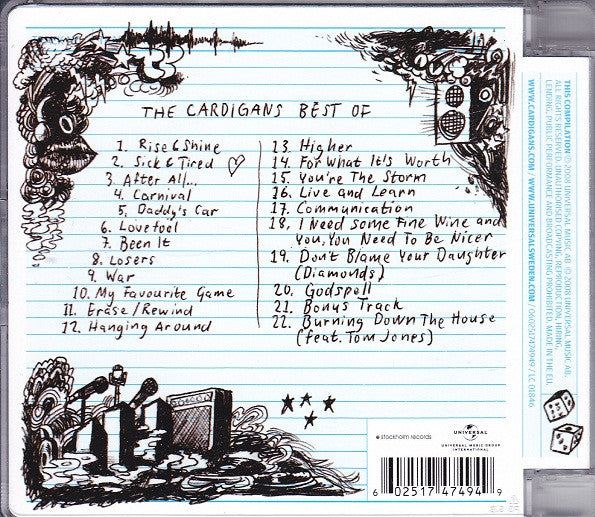 THE CARDIGANS BEST OF
1. Rise & Shine
2. Sick & Tired
3. After All...
4. Carnival
5. Daddy's Car
6. Lovefool
7. Been It
8. Losers
9. War
10. My Favourite Game
11. Erase/Rewind
12. Hanging Around
13. Higher
14. For What It's Worth
15. You're The Storm
16. Live and Learn
17. Communication
18. I Need Some Fine Wine and
You, You Need To Be Nicer
19. Don't Blame Your Daughter
(Diamonds)
20. Godspell
21. Bonus Track
22. Burning Down The House
(feat. Tom Jones)
stockholm records
UNIVERSAL
UNIVERSAL MUSIC GROUP
INTERNATIONAL
6 02517 47494 9
THIS COMPILATION ℗ 2008 UNIVERSAL MUSIC AB. © 2008 UNIVERSAL MUSIC AB.
ALL RIGHTS RESERVED. UNAUTHORISED COPYING, REPRODUCTION, HIRING,
LENDING, PUBLIC PERFORMANCE AND BROADCASTING PROHIBITED. MADE IN THE EU.
WWW.CARDIGANS.COM / WWW.UNIVERSALSWEDEN.COM / 0602517474949 / LC 00846